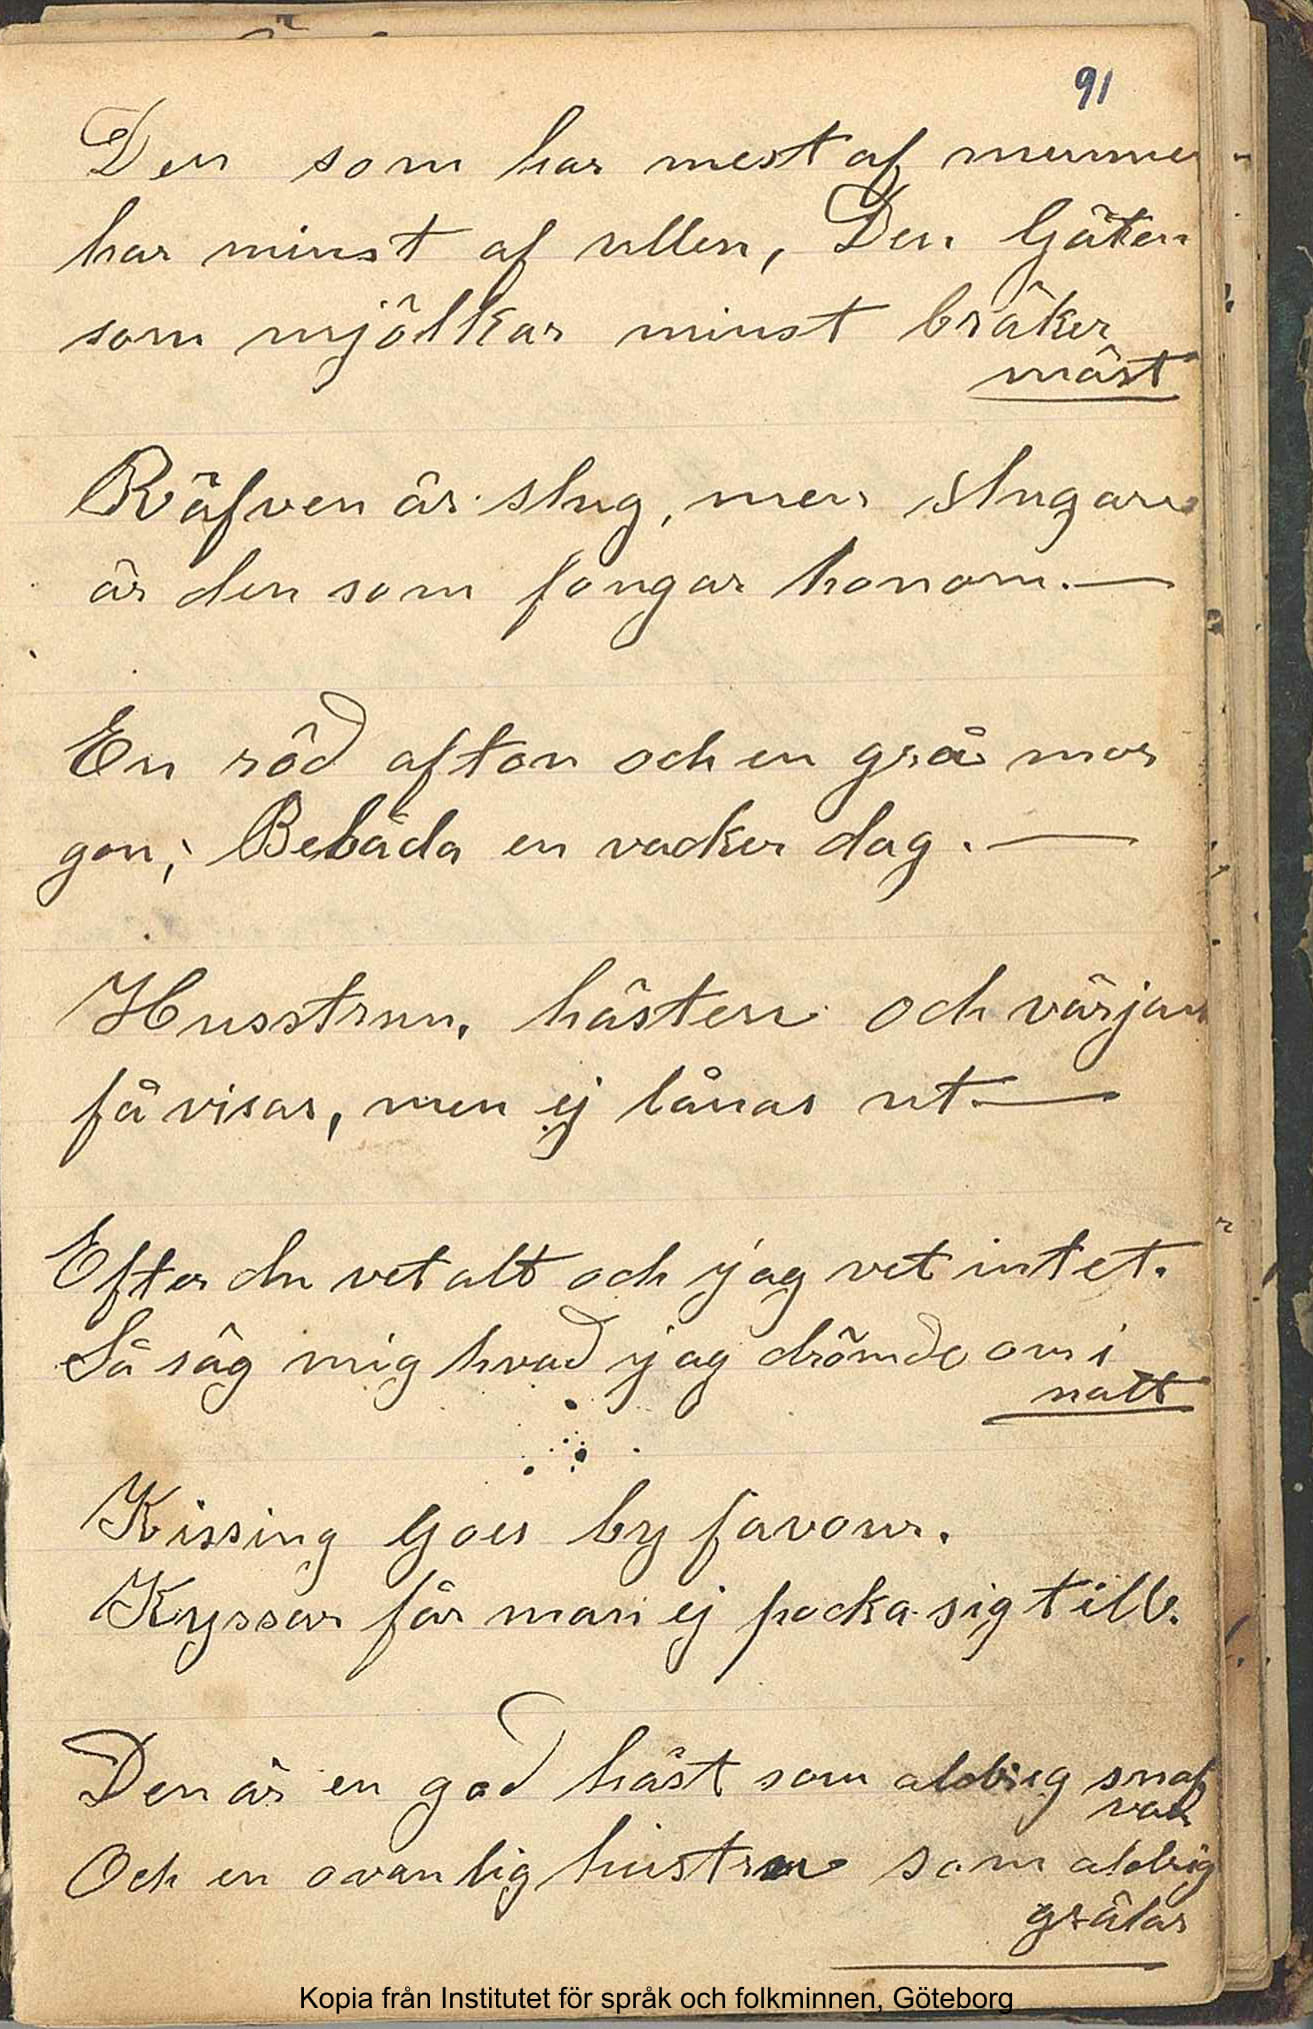 91
Den som har mest af munne
har minst af ullen, Den Gäten
som mjölkar minst bräker
mäst
Räfven är slug, men slugare
är den som fongar honom.—
En röd afton och en grå mor
gon, Bebåda en vacker dag.—
Husstrun, hästen och värjan
få visas, men ej lånas ut.—
Efter du vet alt och jag vet intet.
Så säg mig hvad jag drömde om i
natt
Kissing Goes by favour.
Kyssar får man ej pocka sig till.
Den är en god häst som aldrig snaf
var
Och en ovanlig hustru som aldrig
grälar
Kopia från Institutet för språk och folkminnen, Göteborg